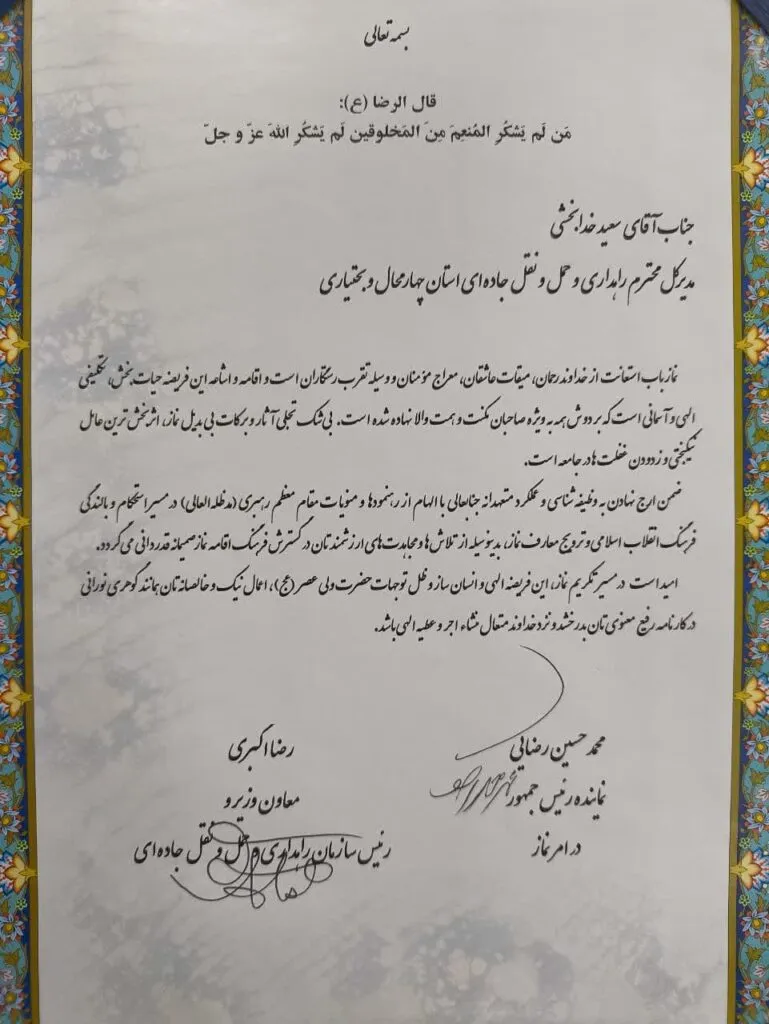 بسمه تعالی
قال الرضا (ع):
مَن لَم یَشکُرِ المُنعِمَ مِنَ المَخلوقین لَم یَشکُرِ اللهَ عزّ و جلّ
جناب آقای سعید خدابخشی
مدیرکل محترم راهداری و حمل و نقل جاده ای استان چهارمحال و بختیاری
نماز باب استعانت از خداوند رحمان، میقات عاشقان، معراج مؤمنان و وسیله تقرب رستگاران است و اقامه و اشاعه این فریضه حیات بخش، تکلیفی
الهی و آسمانی است که بر دوش همه به ویژه صاحبان مکنت و همت والا نهاده شده است. بی شک تجلی آثار و برکات بی بدیل نماز، اثربخش ترین عامل
نیکبختی و زدودن غفلت ها در جامعه است.
ضمن ارج نهادن به وظیفه شناسی و عملکرد متعهدانه جنابعالی با الهام از رهنمودها و منویات مقام معظم رهبری (مدظله العالی) در مسیر استحکام و بالندگی
فرهنگ انقلاب اسلامی و ترویج معارف نماز، بدینوسیله از تلاش ها و مجاهدت های ارزشمندتان در گسترش فرهنگ اقامه نماز صمیمانه قدردانی می گردد.
امید است در مسیر تکریم نماز، این فریضه الهی و انسان ساز و ظل توجهات حضرت ولی عصر (عج)، اعمال نیک و خالصانه تان همانند گوهری نورانی
در کارنامه رفیع معنوی تان بدرخشد و نزد خداوند متعال منشاء اجر و عطیه الهی باشد.
محمد حسین رضایی
نماینده رئیس جمهور
در امر نماز
رضا اکبری
معاون وزیر و
رئیس سازمان راهداری و حمل و نقل جاده ای